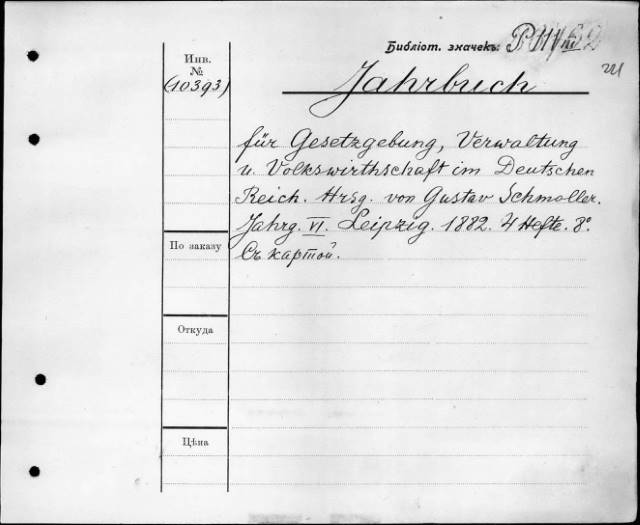 Библіот. значекъ:
Инв.
№
(10393)
Jahrbuch
für Gesetzgebung, Verwaltung
u. Volkswirthschaft im Deutschen
Reich. Hrsg. von Gustav Schmoller.
Jahrg. VI. Leipzig. 1882. 4 Hefte. 8°.
Съ картой.
По заказу
Откуда
Цѣна